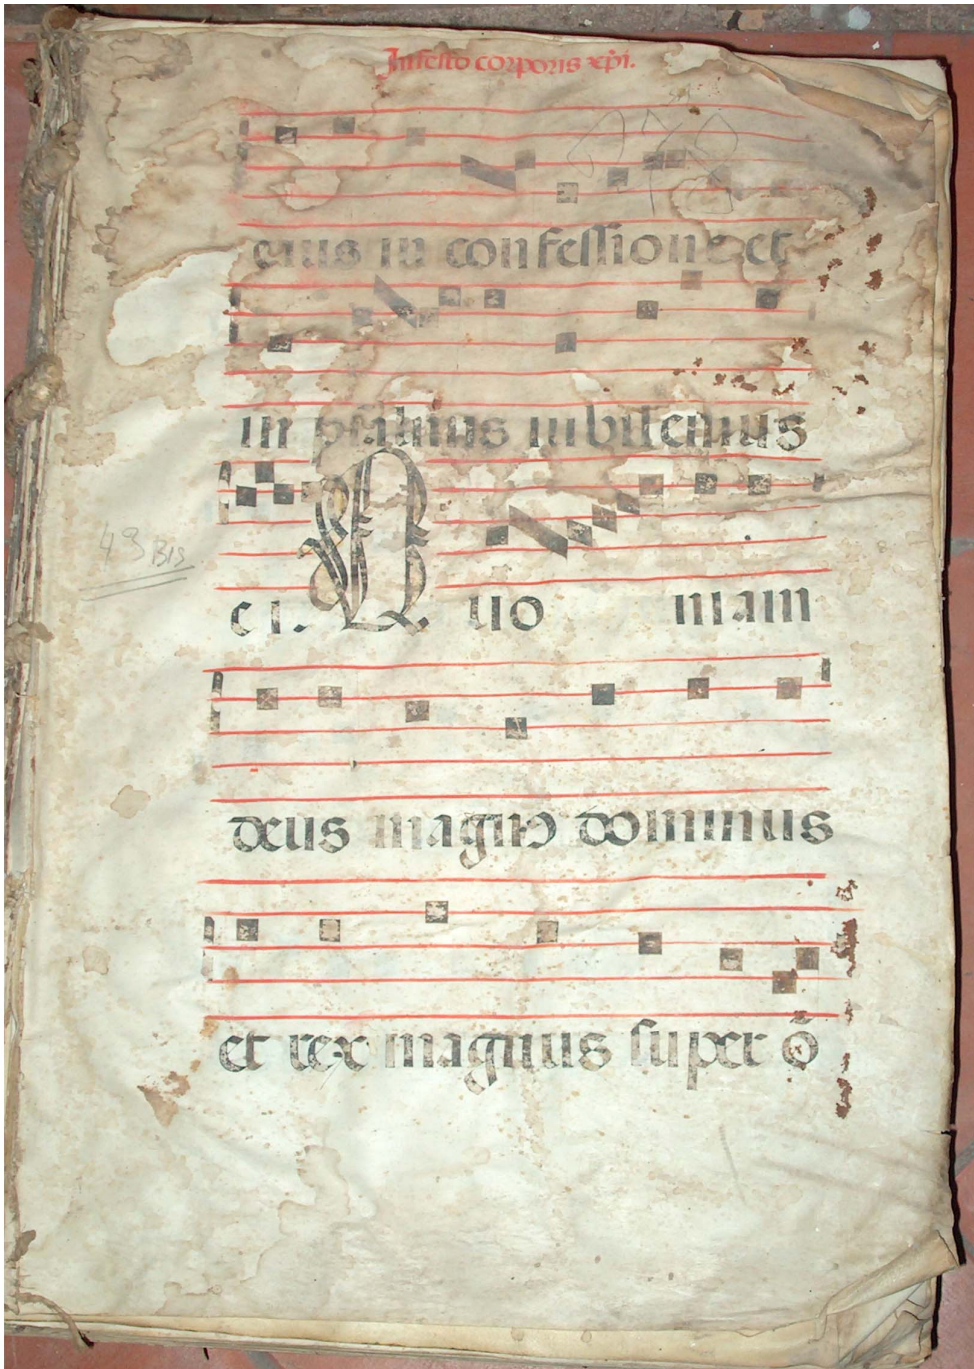 In festo corporis xp̄i.
eius in confessione et
in psalmis iubilemus
49 BIS
ei. Quo niam
deus magnꝰ dominus
et rex magnus super õ